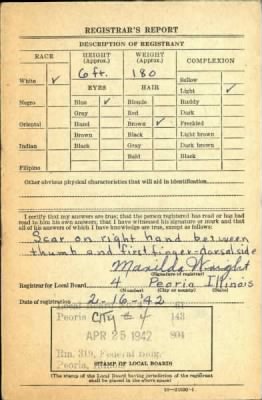 REGISTRAR'S REPORT
DESCRIPTION OF REGISTRANT
RACE HEIGHT (Approx.) WEIGHT (Approx.) COMPLEXION
White ✓ 6 ft. 180 Sallow
EYES HAIR Light ✓
Negro Blue ✓ Blonde Ruddy
Gray Red Dark
Oriental Hazel Brown ✓ Freckled
Brown Black Light brown
Indian Black Gray Dark brown
Bald Black
Filipino
Other obvious physical characteristics that will aid in identification
I certify that my answers are true; that the person registered has read or has had
read to him his own answers; that I have witnessed his signature or mark and that
all of his answers of which I have knowledge are true, except as follows:
Scar on right hand between
thumb and first finger - dorsal side
Matilda Wright
(Signature of registrar)
Registrar for Local Board 4 Peoria Illinois
(Number) (City or county) (State)
Date of registration 2-16-'42
Local Board
Peoria City #4 143
APR 25 1942
Rm. 319, Federal Bldg.
Peoria, Illinois
(STAMP OF LOCAL BOARD)
(The stamp of the Local Board having jurisdiction of the registrant
shall be placed in the above space.)